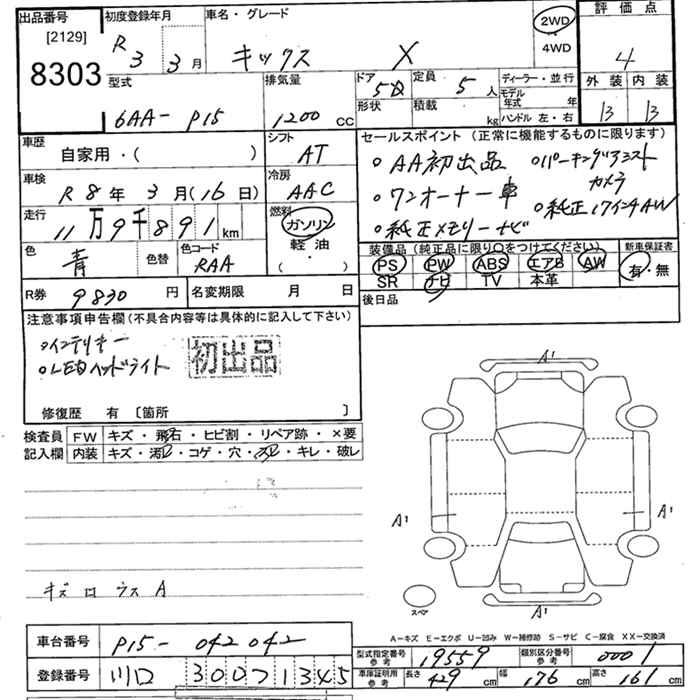 出品番号 [2129] 8303
初度登録年月 R3 3月
車名・グレード キックス X
2WD
4WD
評価点 4
外装 13 内装 13
型式 6AA-P15
排気量 1200 CC
ドア 5D
形状
定員 5人
積載 kg
ディーラー・並行
モデル年式 年
ハンドル 左・右
車歴 自家用・( )
シフト AT
車検 R8年3月(16日)
冷房 AAC
走行 11万9千891km
燃料 ガソリン
軽油
・( )
色 青 色替
色コード RAA
R券 9830円
名変期限 月 日
セールスポイント(正常に機能するものに限ります)
○AA初出品 ○パーキングアシスト
カメラ
○ワンオーナー車 ○純正17インチAW
○純正メモリーナビ
装備品(純正品に限り○をつけてください)
PS PW ABS エアB AW
SR ナビ TV 本革
新車保証書 有・無
後日品
注意事項申告欄(不具合内容等は具体的に記入して下さい)
○インテリキー
○LEDヘッドライト
初出品
修復歴 有〔箇所 〕
検査員記入欄
FW キズ・飛石・ヒビ割・リペア跡・×要
内装 キズ・汚レ・コゲ・穴・スレ・キレ・破レ
キズロウスA
A1
A1
A1
A1
スペア
A-キズ E-エクボ U-凹み W-補修跡 S-サビ C-腐食 XX-交換済
車台番号 P15-042042
登録番号 川口 300 フ 1345
型式指定番号 参考 19559
類別区分番号 参考 0001
車庫証明用 参考 長さ 429cm 幅 176cm 高さ 161cm